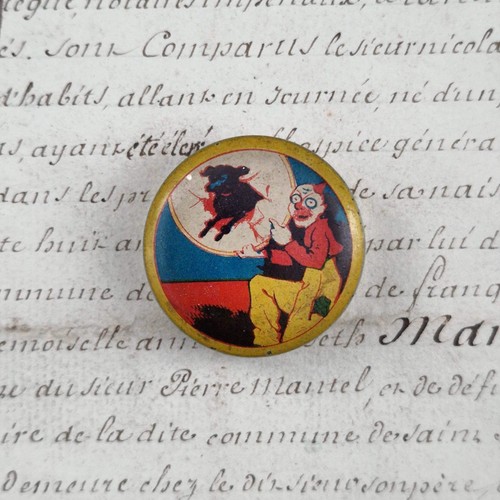 légue, notaires impériaux, à la ré
és. sont Comparus le sieur nicola
d'habits, allant en Journée, né d'un
as, ayant été élevé hospice généra
dans les pr de sa nais
te huit an par lui d
mmune de de franq
emoiselle ann eth Man
re du sieur Pierre Mantel, et de déf
ire de la dite commune de saint
demeure chez le dit sieur son père,